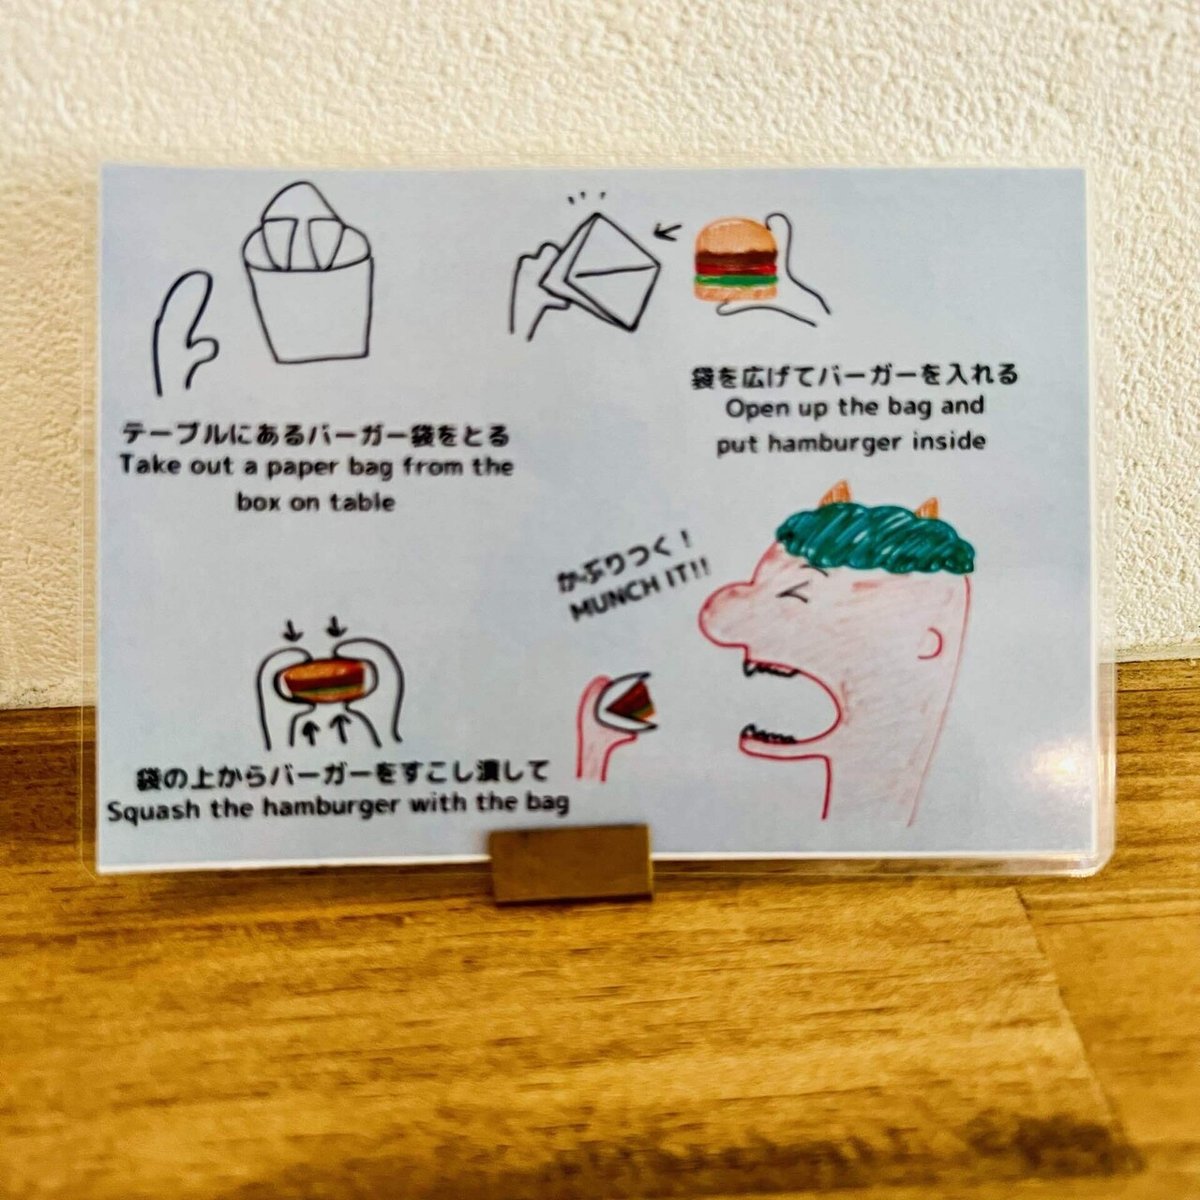 テーブルにあるバーガー袋をとる
Take out a paper bag from the
box on table
袋を広げてバーガーを入れる
Open up the bag and
put hamburger inside
袋の上からバーガーをすこし潰して
Squash the hamburger with the bag
かぶりつく！
MUNCH IT!!